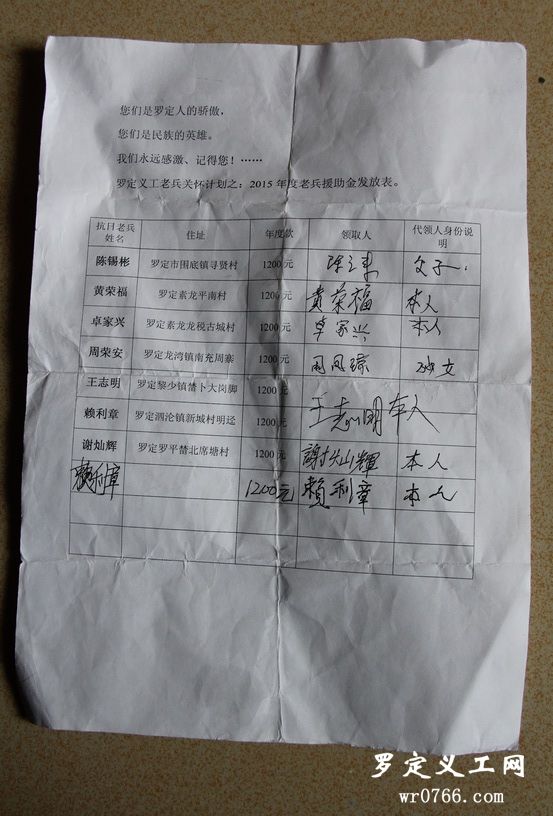 您们是罗定人的骄傲，
您们是民族的英雄。
我们永远感激、记得您！……
罗定义工老兵关怀计划之：2015年度老兵援助金发放表。
抗日老兵姓名 住址 年度款 领取人 代领人身份说明
陈锡彬 罗定市围底镇寻贤村 1200元 父子
黄荣福 罗定素龙平南村 1200元 黄荣福 本人
卓家兴 罗定素龙龙税古城村 1200元 卓家兴 本人
周荣安 罗定龙湾镇南充周寨 1200元 周凤琼
王志明 罗定黎少镇榃卜大岗脚 1200元 王志明 本人
赖利章 罗定泗沦镇新城村明迳 1200元
谢灿辉 罗定罗平榃北席塘村 1200元 謝灿輝 本人
赖利章 1200元 赖利章 本人
罗定义工网
wr0766.com